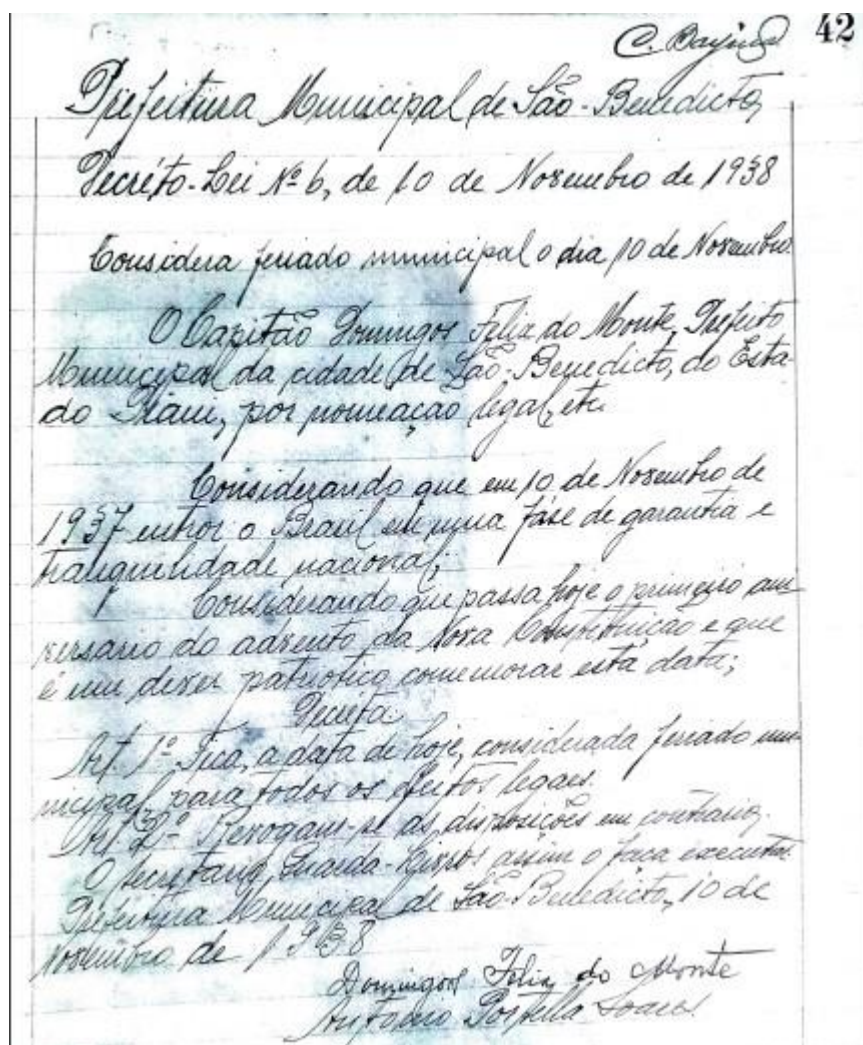 42
Prefeitura Municipal de São-Benedicto,
Decréto-Lei Nº 6, de 10 de Novembro de 1938
Considera feriado municipal o dia 10 de Novembro.
O Capitão Domingos Felix do Monte, Prefeito
Municipal da cidade de São-Benedicto, do Esta-
do Piaui, por nomeação legal, etc.
Considerando que em 10 de Novembro de
1937 entrou o Brasil em uma fáse de garantia e
tranquelidade nacional;
Considerando que passa hoje o primeiro ani
versario do advento da Nova Constituição e que
é um dever patriotico comemorar esta data;
Decreta
Art. 1º Fica, a data de hoje, considerada feriado mu-
nicipal para todos os efeitos legaes.
Art. 2º Revogam-se as disposições em contrario.
O Secretario, Guarda-Livros assim o faca executar.
Prefeitura Municipal de São-Benedicto, 10 de
Novembro de 1938
Domingos Felix do Monte
Antonio Portella Soares.